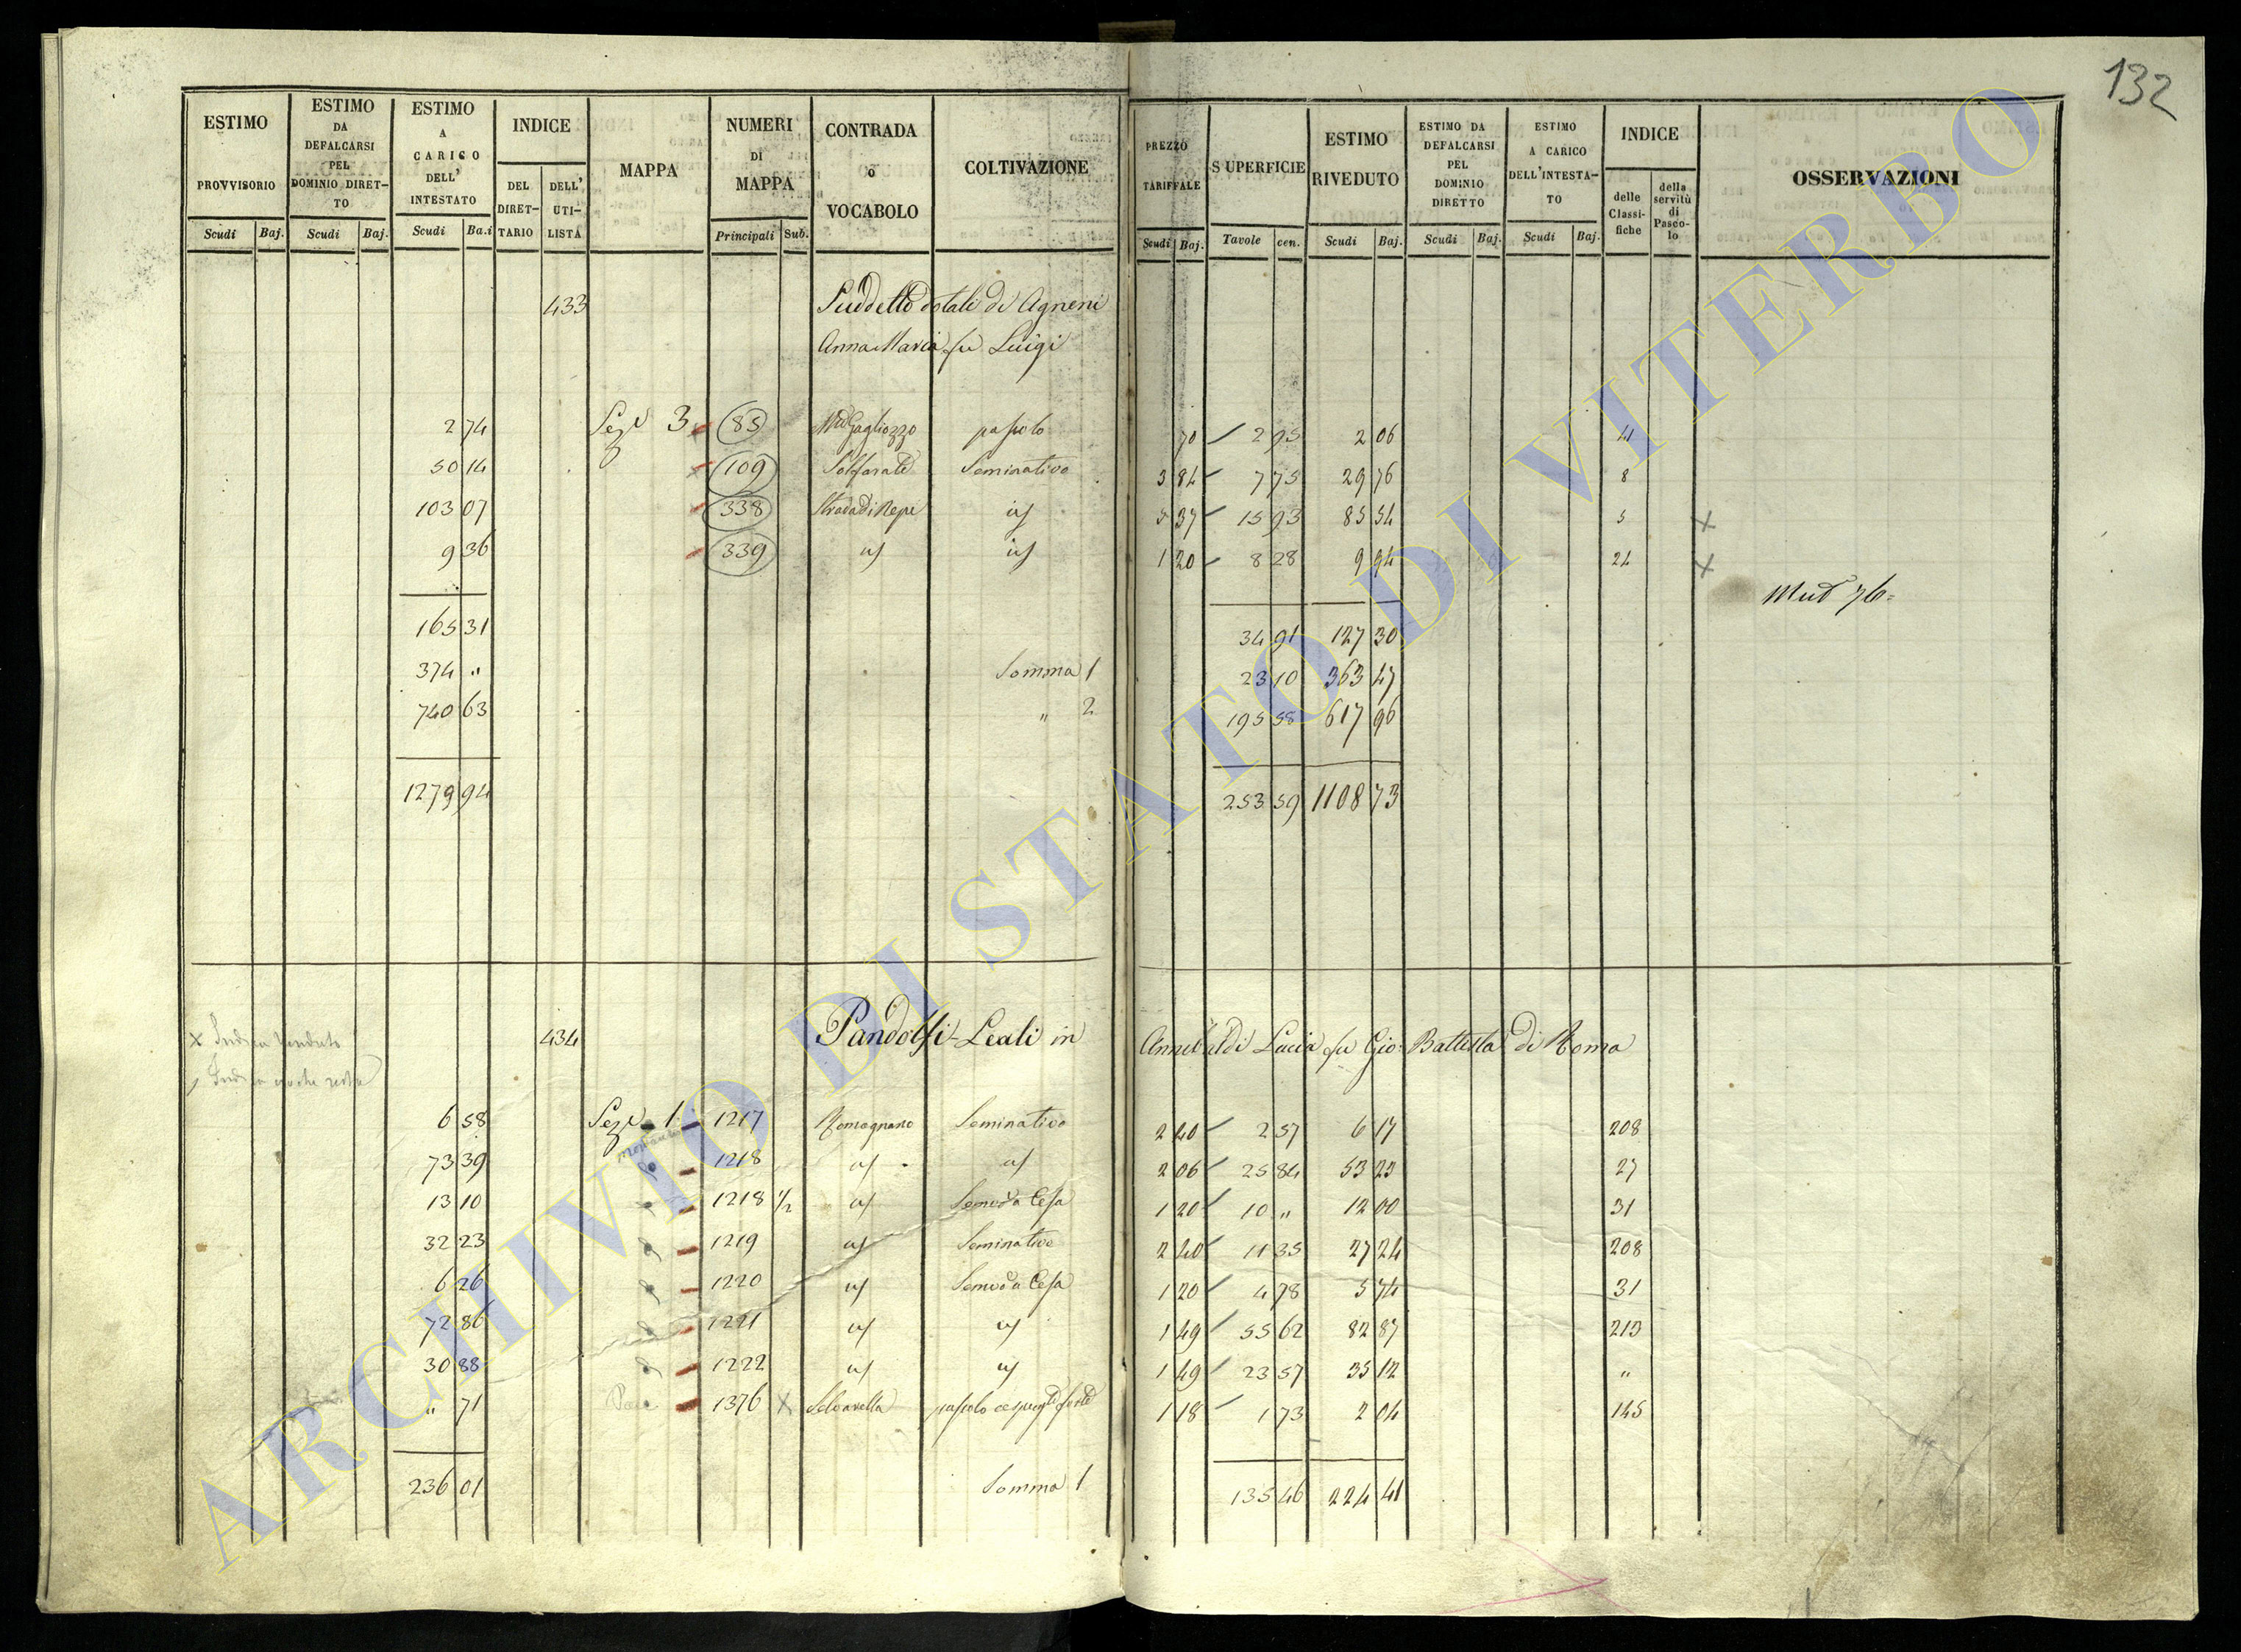 132
ESTIMO PROVVISORIO Scudi Baj.
ESTIMO DA DEFALCARSI PEL DOMINIO DIRET-TO Scudi Baj.
ESTIMO A CARICO DELL' INTESTATO Scudi Ba.i
INDICE DEL DIRET-TARIO DELL' UTI-LISTA
MAPPA
NUMERI DI MAPPA Principali Sub.
CONTRADA o VOCABOLO
COLTIVAZIONE
PREZZO TARIFFALE Scudi Baj.
SUPERFICIE Tavole cen.
ESTIMO RIVEDUTO Scudi Baj.
ESTIMO DA DEFALCARSI PEL DOMINIO DIRETTO Scudi Baj.
ESTIMO A CARICO DELL'INTESTA-TO Scudi Baj.
INDICE delle Classi-fiche della servitù di Pasco-lo
OSSERVAZIONI
433 Suddetto dotali di Agneni
Anna Maria fu Luigi
2 74 Sez 3 85 Gagliozzo pascolo 70 2 95 2 06 41
50 14 109 Solforate Seminativo 3 84 7 75 29 76 8
103 07 338 Strada di Nepi 5 37 15 93 85 54 5 x
9 36 339 1 20 8 28 9 94 24 x
Mut 76
165 31 34 91 127 30
374 " Somma 1 23 10 363 47
740 63 " 2 195 58 617 96
1279 94 253 59 1108 73
434 Pandolfi-Leali in Annibaldi Lucia fu Gio: Battista di Roma
6 58 Sez 1 1217 Romagnano Seminativo 2 40 2 57 6 17 208
73 39 1218 2 06 25 84 53 23 27
13 10 1218 1/2 1 20 10 " 12 00 31
32 23 1219 Seminativo 2 40 11 35 27 24 208
6 26 1220 1 20 4 78 5 74 31
72 86 1221 1 49 55 62 82 87 213
30 88 1222 1 49 23 57 35 12 "
" 71 1376 x Selvarella pascolo 1 18 1 73 2 04 145
236 01 Somma 1 135 46 224 41
ARCHIVIO DI STATO DI VITERBO